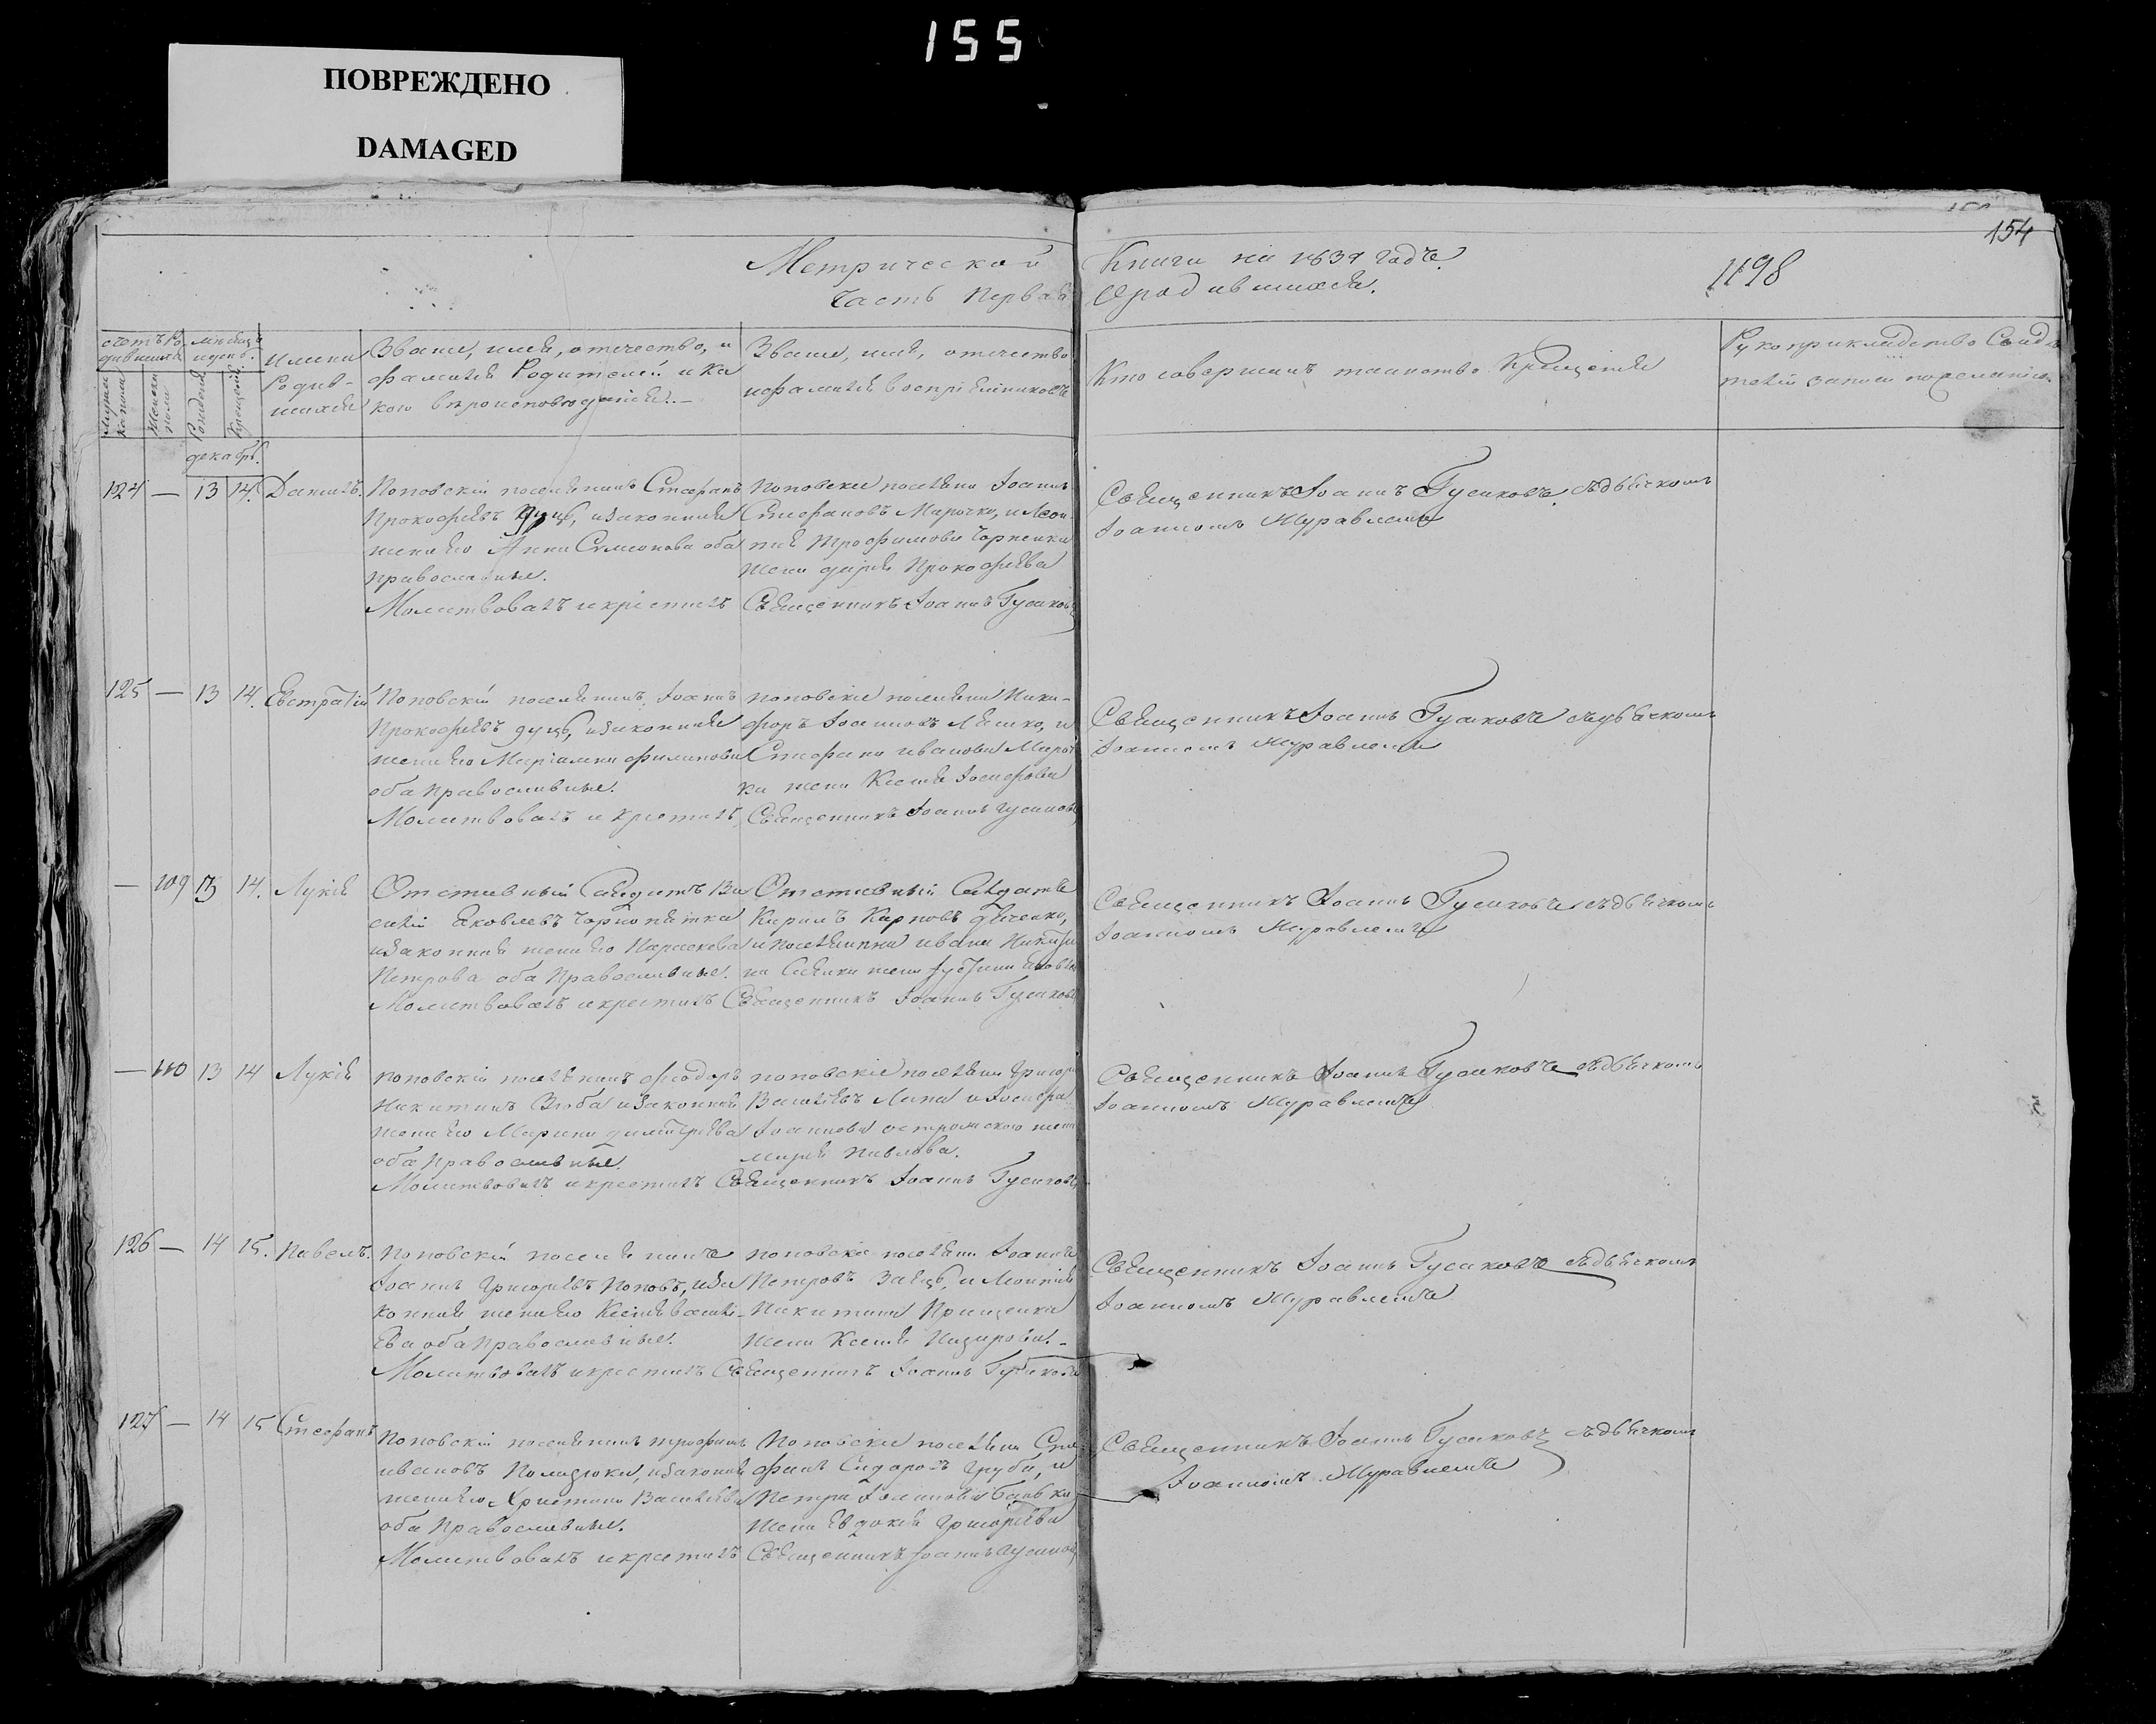 155
ПОВРЕЖДЕНО
DAMAGED
154
Метрической Книги на 1837 годъ
1198
Часть Первая О родившихся.
счетъ Родившихся
мѣсяцъ и день.
Имена Родившихся
Званіе, имя, отечество, и
фамилія Родителей и ка
кого вѣроисповѣданія.
Званіе, имя, отечество
и фамилія воспріемниковъ
Кто совершалъ таинство Крещенія
Рукоприкладство Свидѣ
телей записи по желанію
Мужеска пола
Женска пола
Рожденія
Крещенія
декабрь.
124 — 13 14. Даніилъ.
Поповскій поселянинъ Стефанъ
Прокофіевъ Дуць, и законная
жена его Анна Симеонова оба
православные.
Молитвовалъ и крестилъ
Поповскіе поселяни Іоаннъ
Стефановъ Марочко, и Леон
тія Трофимова Чорненка
жена Дарія Прокофіева
Священникъ Іоаннъ Гусаковъ
Священникъ Іоаннъ Гусаковъ съ дьячкомъ
Іоанномъ Журавлемъ
125 — 13 14. Евстратій
Поповскій поселянинъ, Іоаннъ
Прокофіевъ дуць, и законная
жена его Маріамна Филипова
оба православные.
Молитвовалъ и крестилъ
поповскіе поселяни Ники-
форъ Іоанновъ Ляшко, и
Стефана Иванова Мироч
ка жена Ксенія Іосифова
Священникъ Іоаннъ Гусаковъ
Священникъ Іоаннъ Гусаковъ съ дьячкомъ
Іоанномъ Журавлемъ
— 109 13 14. Лукія
Отставный Салдатъ Ва
силій Яковлевъ Чорнопятка
и законная жена его Параскева
Петрова оба Православные.
Молитвовалъ и крестилъ Священникъ Іоаннъ Гусаковъ
Отставный Салдатъ
Кирилъ Карповъ
и поселянина Ивана Никити
на жена Іустина Яковлева
Священникъ Іоаннъ Гусаковъ съ дьячкомъ
Іоанномъ Журавлемъ
— 110 13 14 Лукія
поповскій поселянинъ Феодоръ
Никитинъ Зюба и законная
жена его Марина Димитріева
оба Православные.
Молитвовалъ и крестилъ Священникъ Іоаннъ Гусаковъ
поповскіе поселяни Григорій
Васильевъ Лила и Іосифа
Іоаннова Остромского жена
Марія Павлова.
Священникъ Іоаннъ Гусаковъ съ дьячкомъ
Іоанномъ Журавлемъ
126 — 14 15. Павелъ.
Поповскій поселянинъ
Іоаннъ Григоріевъ Поповъ, и за
конная жена его Ксенія Василі-
ева оба Православные.
Молитвовалъ и крестилъ Священникъ Іоаннъ Гусаковъ
поповскіе поселяни Іоаннъ
Петровъ Заяцъ, и Леонтія
Никитина Прищепка
жена Ксенія Назарова. -
Священникъ Іоаннъ Гусаковъ съ дьячкомъ
Іоанномъ Журавлемъ
127 — 14 15 Стефанъ
Поповскій поселянинъ Трофимъ
Ивановъ Полазюка, и законная
жена его Христина Василіева
оба Православные.
Молитвовалъ и крестилъ
Поповскіе поселяни Сте
фанъ Сидоровъ Груба, и
Петра Іоаннова
жена Евдокія Григоріева
Священникъ Іоаннъ Гусаковъ
Священникъ Іоаннъ Гусаковъ съ дьячкомъ
Іоанномъ Журавлемъ